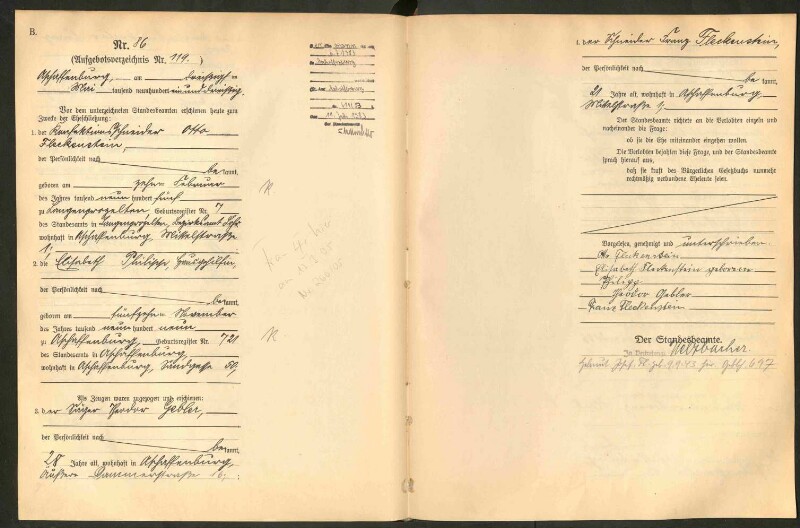 B.
Nr. 86
(Aufgebotsverzeichnis Nr. 119.)
Aschaffenburg, am dreißigsten
Mai tausend neunhundert einunddreißig.
Vor dem unterzeichneten Standesbeamten erschienen heute zum
Zwecke der Eheschließung:
1. der Konfektionsschneider Otto
Fleckenstein,
der Persönlichkeit nach
bekannt,
geboren am zehn Februar
des Jahres tausend neun hundert fünf
zu Langenprozelten, Geburtsregister Nr. 7
des Standesamts in Langenprozelten, Bezirksamt Lohr
wohnhaft in Aschaffenburg, Mittelstraße
1;
2. die Elisabeth Philipp, Hausgehilfin,
der Persönlichkeit nach
bekannt,
geboren am fünfzehn November
des Jahres tausend neun hundert neun
zu Aschaffenburg, Geburtsregister Nr. 721
des Standesamts in Aschaffenburg,
wohnhaft in Aschaffenburg, Sandgasse 50,
Als Zeugen waren zugezogen und erschienen:
3. der Säger Theodor Gebler,
der Persönlichkeit nach
bekannt,
28 Jahre alt, wohnhaft in Aschaffenburg,
Äußere Dammerstraße 16;
4. der Schneider Franz Fleckenstein,
der Persönlichkeit nach
bekannt,
21 Jahre alt, wohnhaft in Aschaffenburg,
Mittelstraße 1,
Der Standesbeamte richtete an die Verlobten einzeln und
nacheinander die Frage:
ob sie die Ehe miteinander eingehen wollen.
Die Verlobten bejahten diese Frage, und der Standesbeamte
sprach hierauf aus,
daß sie kraft des Bürgerlichen Gesetzbuchs nunmehr
rechtmäßig verbundene Eheleute seien.
Vorgelesen, genehmigt und unterschrieben
Otto Fleckenstein
Elisabeth Fleckenstein geborene
Philipp
Theodor Gebler
Franz Fleckenstein
Der Standesbeamte.
In Vertretung: Welzbacher.